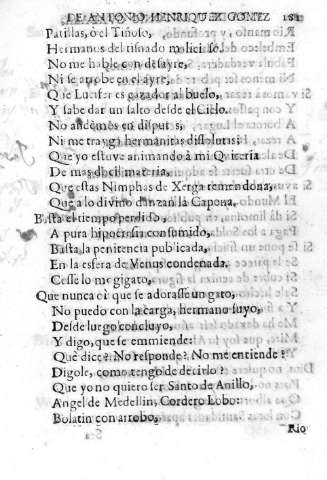 DE ANTONIO HENRIQUEZ GOMEZ
Patillas, ò el Tiñoso,
Hermanos del tisnado
No me hable con desayre,
Ni se arrobe en el ayre,
Que Lucifer es cazador al buelo,
Y sabe dar un salto desde el Cielo.
No andemos en disputas,
Ni me trayga hermanitas dissolutas;
Que yo estuve animando à mi Quiteria
De mas docil materia,
Que estas Nimphas de Xerga remendona,
Que a lo divino danzan la Capona.
Basta el tiempo perdido,
A pura hipocresia consumido,
Basta la penitencia publicada,
En la esfera de Venus condenada.
Cesse lo me gigato,
Que nunca oì que se adorasse un gato,
No puedo con la carga, hermano suyo,
Desde luego concluyo,
Y digo, que se emmiende:
Què dice? No responde? No me entiende?
Digole, como tengo de decirlo?
Que yo no quiero ser Santo de Anillo,
Angel de Medellin, Cordero Lobo:
Bolatin con arrobo,
Rio